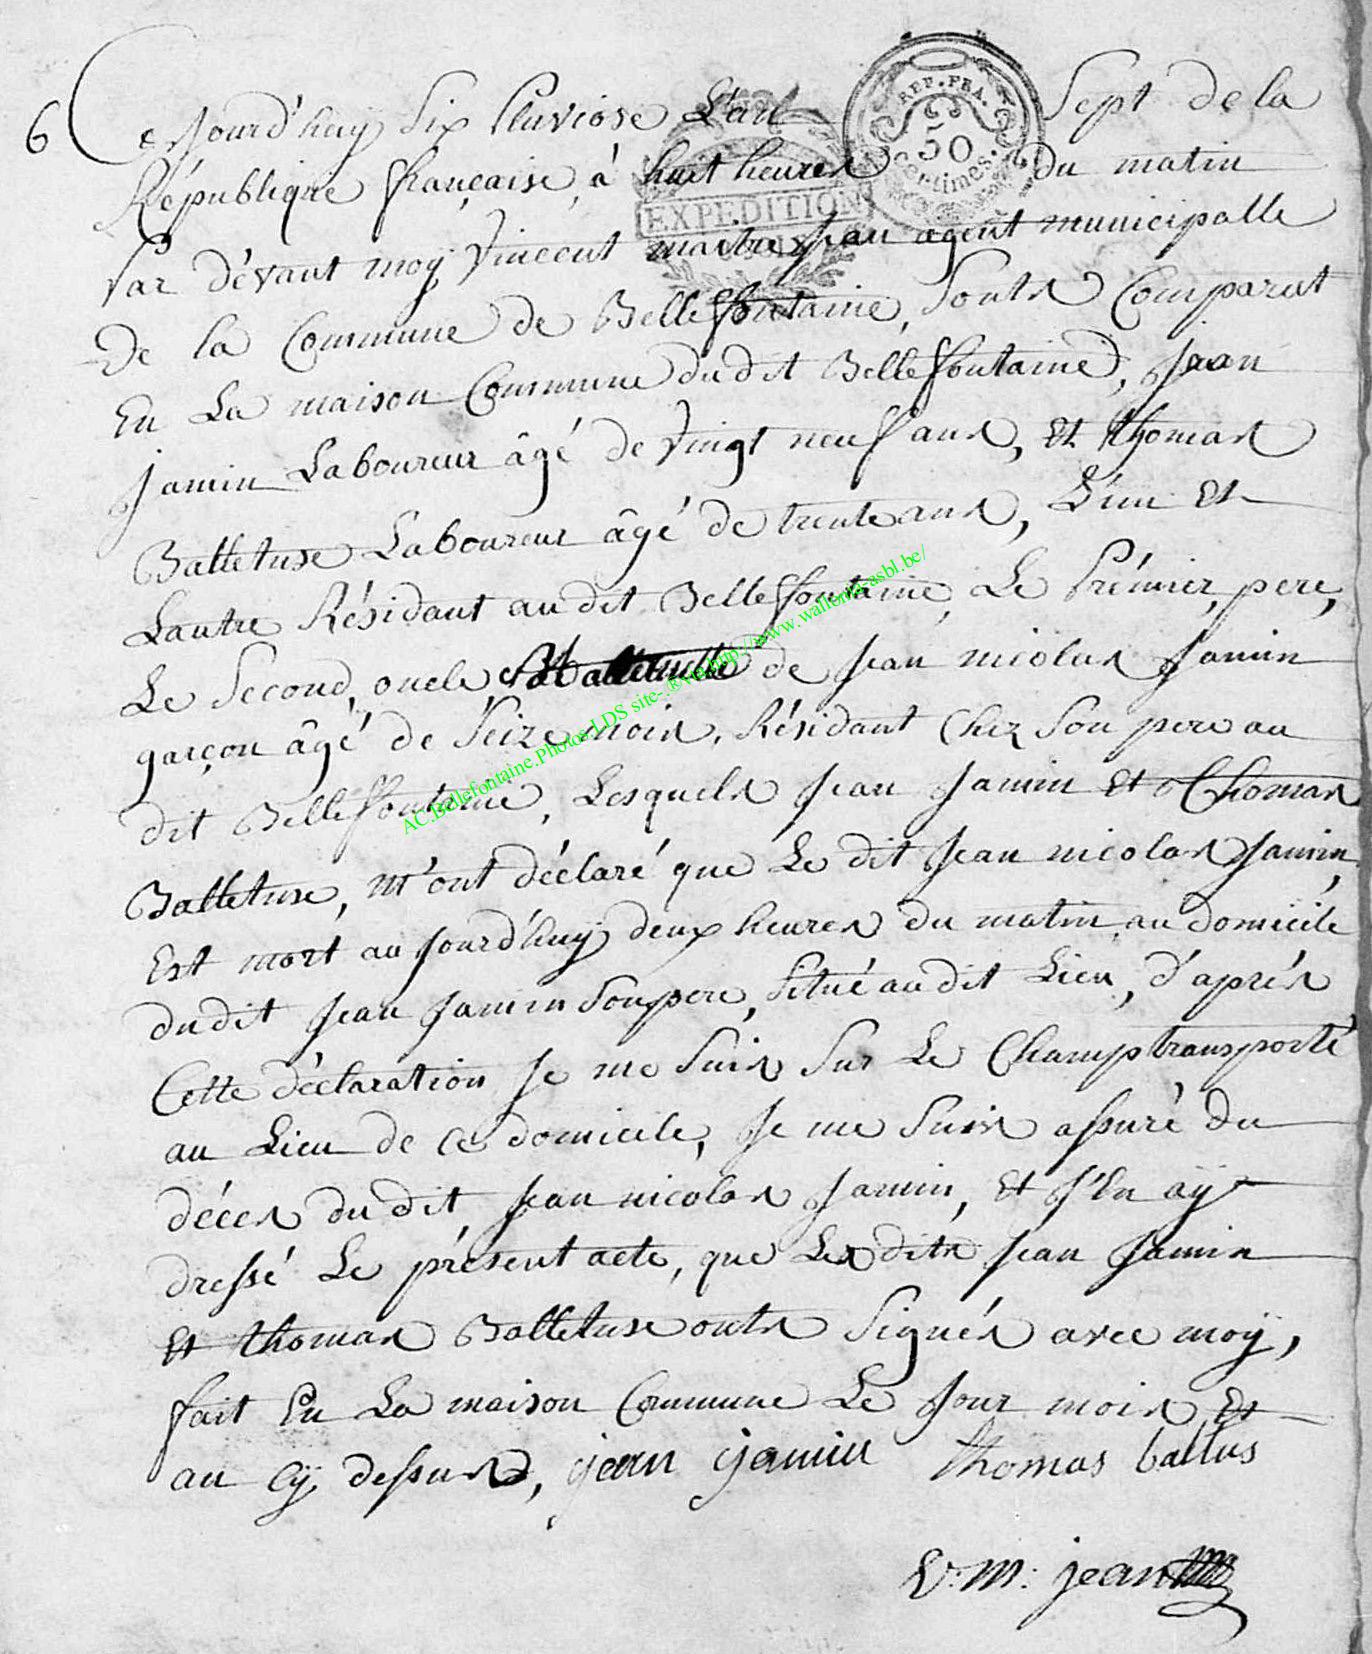 6 Cejourd'huÿ Six Pluviose L'an Sept de la
REP. FRA.
50
Centimes.
République française, à huit heures du matin
EXPEDITION
Par dévant moÿ Vincent maitre Jean agent municipalle
De la Commune de Bellefontaine, Sonts Comparut
En La maison Commune du dit Bellefontaine, Jean
Jamin Laboureur âgé de Vingt neuf ans, Et thomas
Balletuse Laboureur âgé de trente ans, L'un Et
Lautre Résidant au dit Bellefontaine, Le Prémier, pere,
Le Second, oncle de Jean nicolas Jamin
garçon âgé de Seize mois, Résidant Chez Son pere au
dit Bellefontaine, Lesquels Jean Jamin Et Thomas
AC.Bellefontaine.Photos LDS site-.®via http://www.wallonia-asbl.be/
Balletuse, M'ont déclaré que Le dit Jean nicolas Jamin,
Est mort au Jourd'huy deux heures du matin, au domicile
du dit Jean Jamin Son pere, Situé au dit Lieu, d'aprés
Cette déclaration Je me Suis Sur Le Champ transporté
au Lieu de ce domicile, Je me Suis assuré du
déces du dit Jean nicolas Jamin, Et J'En aÿ
dressé Le présent acte, que Les dits Jean Jamin
Et thomas Balletuse onts Signés avec moÿ,
fait En La maison Commune Le Jour mois Et
an Cÿ dessus, jean jamin thomas ballus
V: M: jean